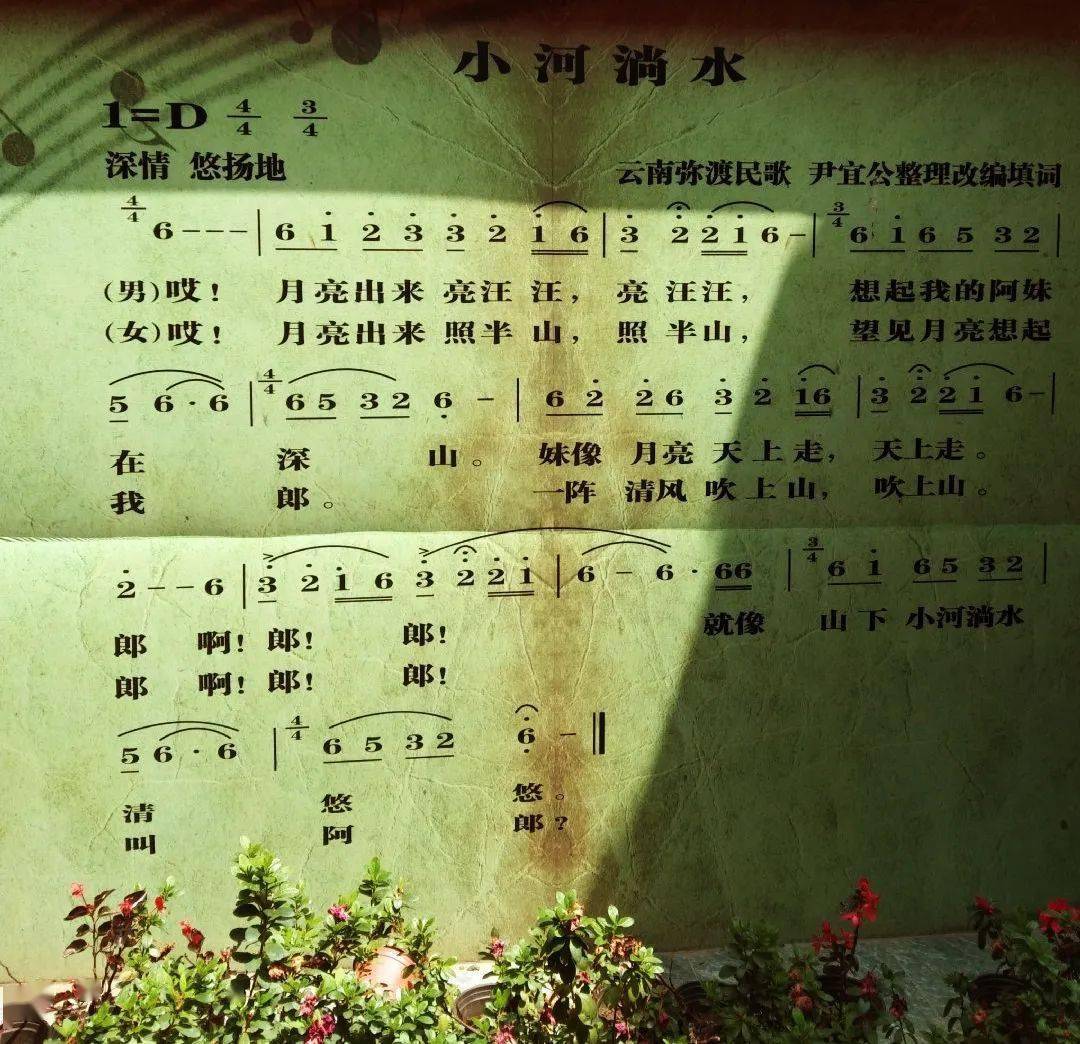 小河淌水
1=D 4/4 3/4
深情 悠扬地 云南弥渡民歌 尹宜公整理改编填词
4/4 6 - - - | 6 1 2 3 3 2 1 6 | 3 2 2 1 6 - | 3/4 6 1 6 5 3 2 |
(男)哎! 月亮出来 亮汪 汪, 亮 汪汪, 想起我的阿妹
(女)哎! 月亮出来 照半 山, 照 半山, 望见月亮想起
5 6 · 6 | 4/4 6 5 3 2 6 - | 6 2 2 6 3 2 1 6 | 3 2 2 1 6 - |
在 深 山。 妹像 月亮 天上走, 天上走。
我 郎。 一阵 清风 吹上山, 吹上山。
2 - - 6 | 3 2 1 6 3 2 2 1 | 6 - 6 · 6 6 | 3/4 6 1 6 5 3 2 |
郎 啊! 郎! 郎! 就像 山下 小河淌水
郎 啊! 郎! 郎!
5 6 · 6 | 4/4 6 5 3 2 6 - ‖
清 悠 悠。
叫 阿 郎?